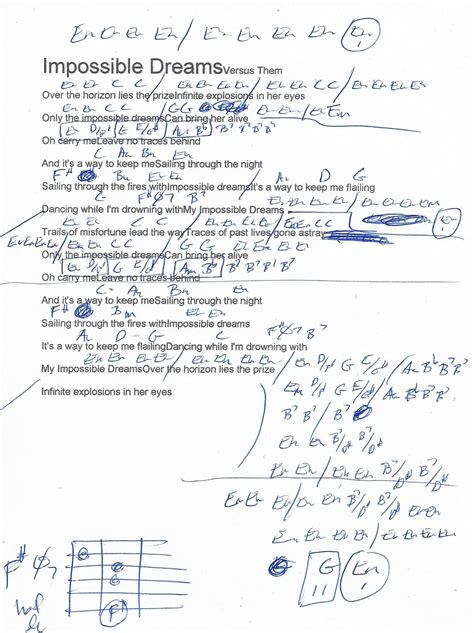 Em Em Em Em / Em Em Em Em (Em 1)
Impossible Dreams Versus Them
Em Em C C / Em Em Em Em / Em Em C C / Em Em Em Em
Over the horizon lies the prizeInfinite explosions in her eyes
Em Em C C / G G Em Em / Em Em
Only the impossible dreamsCan bring her alive
Em D/F# G E/G# Am B7 B7 B7 B7 B7
Oh carry meLeave no traces behind
C Am Bm Em
And it's a way to keep meSailing through the night
F# Bm Em Am D G
Sailing through the fires withImpossible dreamsIt's a way to keep me flailing
C F#ø7 B7
Dancing while I'm drowning withMy Impossible Dreams
Em Em C C / Em Em Em Em / Em Em C C
Trails of misfortune lead the wayTraces of past lives gone astray
Em Em Em Em / Em Em C C G G Em Em Em Em
Only the impossible dreamsCan bring her alive
Em D/F# G E/G# Am B7 B7 B7 B7 B7
Oh carry meLeave no traces behind
C Am Bm Em
And it's a way to keep meSailing through the night
F# Bm Em
Sailing through the fires withImpossible dreams
Am D G C F#ø7 B7
It's a way to keep me flailingDancing while I'm drowning with
Em Em Em Em / Em Em Em Em
My Impossible DreamsOver the horizon lies the prize
Em D/F# G E/G# / Am B7 B7 B7
Infinite explosions in her eyes
Em D/F# G E/G# / Am B7 B7 B7
B7 B7 / B7
Em Em B7/D# B7/D#
Em Em / Em Em B7/D# B7/D#
Em Em Em Em / Em Em B7/D# B7/D#
Em Em Em Em / Em Em Em Em
G 11 Em 1
F#ø7
G
G
G
F#